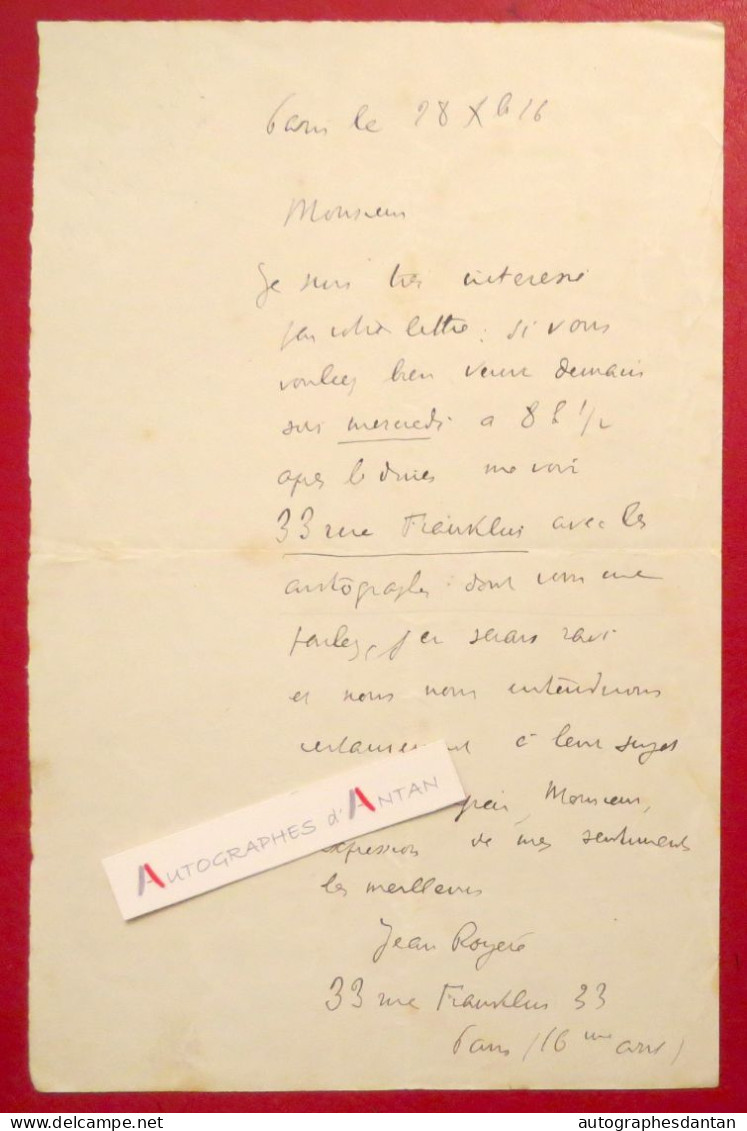 Paris le 28 Xb 16
Monsieur
Je suis très interessé
par votre lettre. Si vous
voulez bien venir demain
soir mercredi a 8 h 1/2
apres le diner me voir
33 rue Franklin avec les
autographes dont vous me
parlez, j'en serais ravi
et nous nous entendrons
certainement à leur sujet
Monsieur,
expression de mes sentiments
les meilleurs
Jean Royere
33 rue Franklin 33
Paris (16 me arrt)
AUTOGRAPHES d'ANTAN
autographesdantan